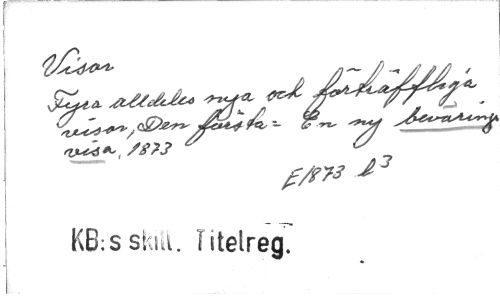 Visor
Fyra alldeles nya och förträffliga
visor, Den första = En ny bevärings
visa, 1873
E1873 b3
KB:s skill. Titelreg.